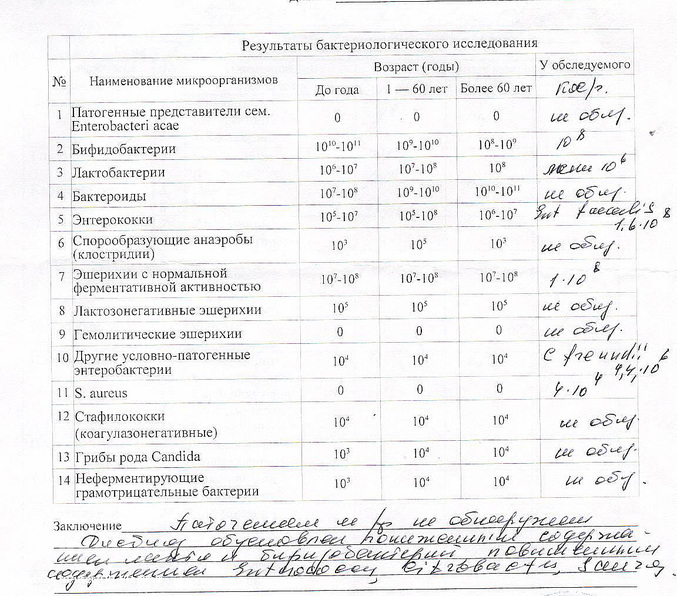 Результаты бактериологического исследования
№ Наименование микроорганизмов Возраст (годы) У обследуемого
До года 1 — 60 лет Более 60 лет
1 Патогенные представители сем. Enterobacteri acae 0 0 0 не обн.
2 Бифидобактерии 10¹⁰-10¹¹ 10⁹-10¹⁰ 10⁸-10⁹ 10⁸
3 Лактобактерии 10⁶-10⁷ 10⁷-10⁸ 10⁸ менее 10⁶
4 Бактероиды 10⁷-10⁸ 10⁹-10¹⁰ 10¹⁰-10¹¹ не обн.
5 Энтерококки 10⁵-10⁷ 10⁵-10⁸ 10⁶-10⁷ Ent faecalis 1,6·10⁸
6 Спорообразующие анаэробы (клостридии) 10³ 10⁵ 10³ не обн.
7 Эшерихии с нормальной ферментативной активностью 10⁷-10⁸ 10⁷-10⁸ 10⁷-10⁸ 1·10⁸
8 Лактозонегативные эшерихии 10⁵ 10⁵ 10⁵ не обн.
9 Гемолитические эшерихии 0 0 0 не обн.
10 Другие условно-патогенные энтеробактерии 10⁴ 10⁴ 10⁴ C freundii 10⁶
11 S. aureus 0 0 0 4·10⁴
12 Стафилококки (коагулазонегативные) 10⁴ 10⁴ 10⁴ не обн.
13 Грибы рода Candida 10³ 10⁴ 10⁴ не обн.
14 Неферментирующие грамотрицательные бактерии 10³ 10⁴ 10⁴ не обн.
Заключение Патогенная м/ф не обнаружена
Дисбиоз обусловлен пониженным содержа-
нием лакто и бифидобактерий повышенным
содержанием Enterococc, Citrobacter, S aureus.